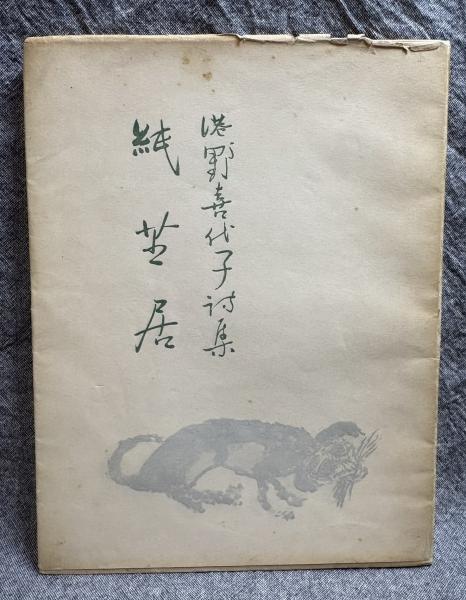 港野喜代子詩集
紙芝居